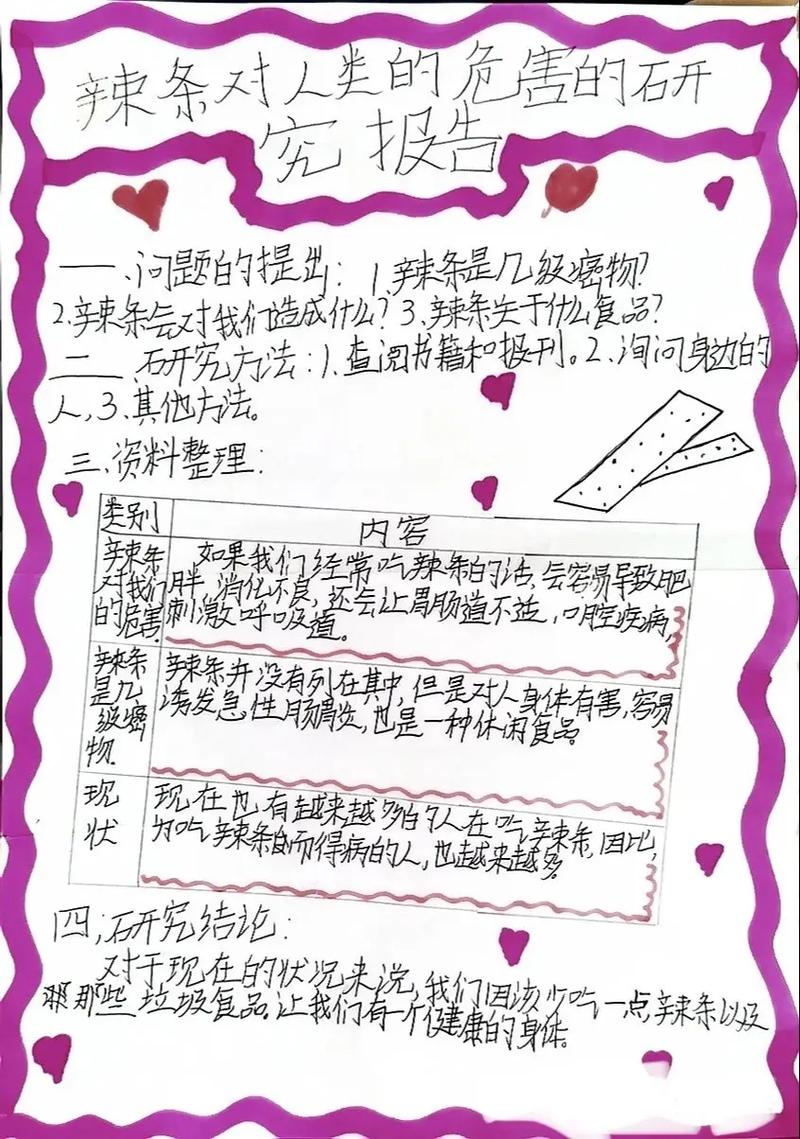 辣条对人类的危害的研
究报告
一、问题的提出：1.辣条是几级癌物？
2.辣条会对我们造成什么？3.辣条关于什么食品？
二、研究方法：1.查阅书籍和报刊。2.询问身边的
人，3.其他方法。
三、资料整理：
类别
内容
辣条
对我们
的危害.
如果我们经常吃辣条的话，会容易导致肥
胖，消化不良，还会让胃肠道不适，口腔疾病，
刺激呼吸道。
辣条
是几
级癌
物.
辣条并没有列在其中，但是对人身体有害，容易
诱发急性肠胃炎，也是一种休闲食品。
现
状
现在也有越来越多的人在吃辣条，因比，
为吃辣条而得病的人，也越来越多。
四；研究结论：
对于现在的状况来说，我们因该少吃一点辣条以及
那些垃圾食品，让我们有一个健康的身体。